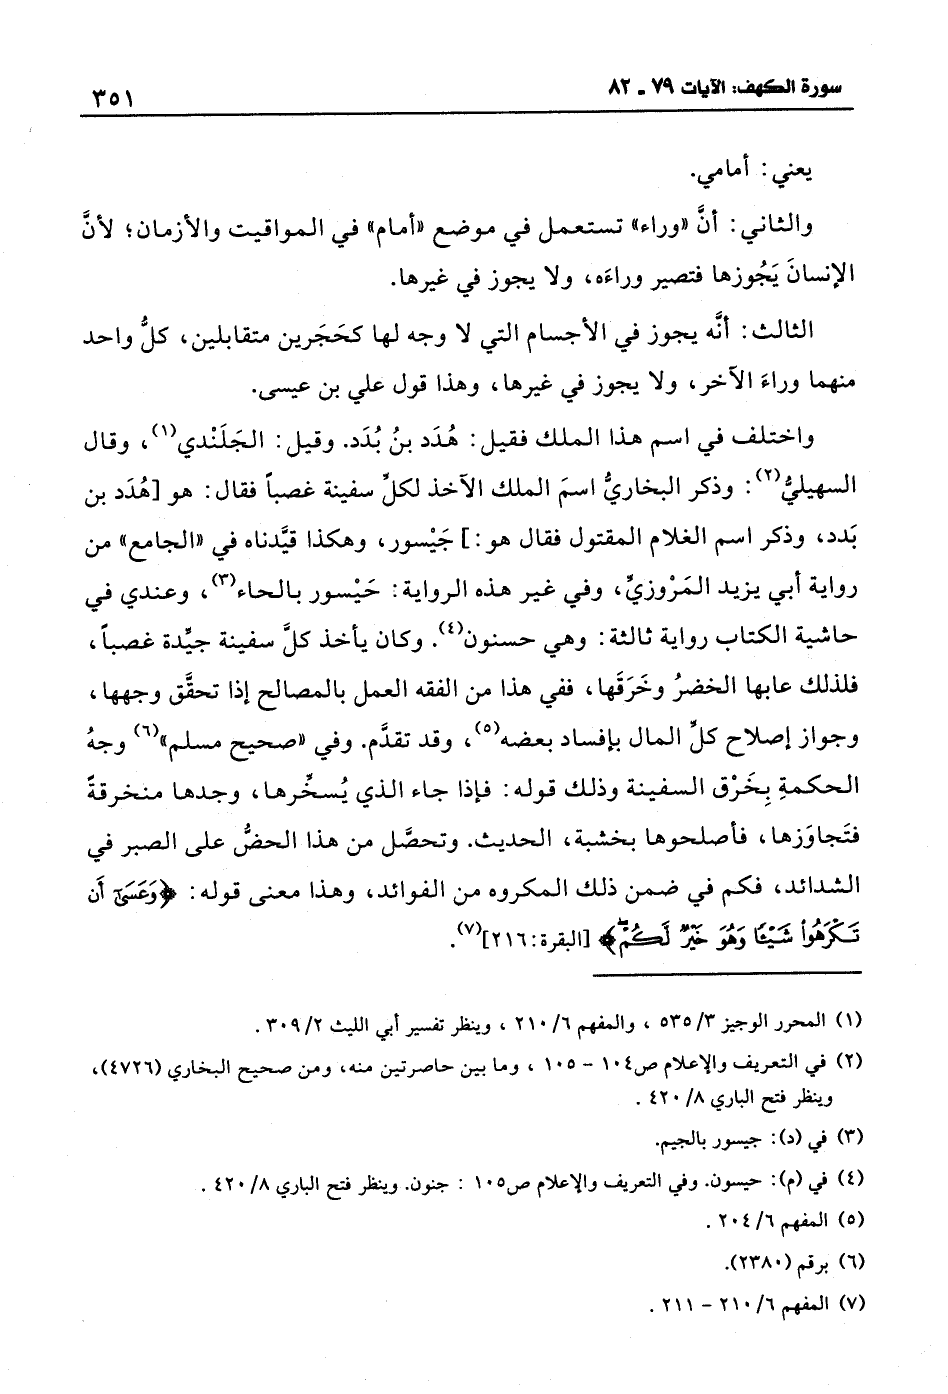 سورة الكهف: الآيات ٧٩ ـ ٨٢
٣٥١
يعني: أمامي.
والثاني: أنَّ «وراء» تستعمل في موضع «أمام» في المواقيت والأزمان؛ لأنَّ
الإنسانَ يَجُوزها فتصير وراءَه، ولا يجوز في غيرها.
الثالث: أنَّه يجوز في الأجسام التي لا وجه لها كحَجَرين متقابلين، كلُّ واحد
منهما وراءَ الآخر، ولا يجوز في غيرها، وهذا قول علي بن عيسى.
واختلف في اسم هذا الملك فقيل: هُدَد بنُ بُدَد. وقيل: الجَلَندي(١)، وقال
السهيليُّ(٢): وذكر البخاريُّ اسمَ الملك الآخذ لكلِّ سفينة غصباً فقال: هو [هُدَد بن
بَدد، وذكر اسم الغلام المقتول فقال هو:] جَيْسور، وهكذا قيَّدناه في «الجامع» من
رواية أبي يزيد المَرْوزيِّ، وفي غير هذه الرواية: حَيْسور بالحاء(٣)، وعندي في
حاشية الكتاب رواية ثالثة: وهي حسنون(٤). وكان يأخذ كلَّ سفينة جيِّدة غصباً،
فلذلك عابها الخضرُ وخَرَقَها، ففي هذا من الفقه العمل بالمصالح إذا تحقَّق وجهها،
وجواز إصلاح كلِّ المال بإفساد بعضه(٥)، وقد تقدَّم. وفي «صحيح مسلم»(٦) وجهُ
الحكمةِ بِخَرْق السفينة وذلك قوله: فإذا جاء الذي يُسخِّرها، وجدها منخرقةً
فتَجاوَزها، فأصلحوها بخشبة، الحديث. وتحصَّل من هذا الحضُّ على الصبر في
الشدائد، فكم في ضمن ذلك المكروه من الفوائد، وهذا معنى قوله: ﴿وَعَسَىٰٓ أَن
تَكْرَهُوا۟ شَيْـًٔا وَهُوَ خَيْرٌ لَّكُمْ ۖ﴾ [البقرة: ٢١٦](٧).
(١) المحرر الوجيز ٣/ ٥٣٥ ، والمفهم ٦/ ٢١٠ ، وينظر تفسير أبي الليث ٢/ ٣٠٩ .
(٢) في التعريف والإعلام ص١٠٤ – ١٠٥ ، وما بين حاصرتين منه، ومن صحيح البخاري (٤٧٢٦)،
وينظر فتح الباري ٨/ ٤٢٠ .
(٣) في (د): جيسور بالجيم.
(٤) في (م): حيسون. وفي التعريف والإعلام ص١٠٥ : جنون. وينظر فتح الباري ٨/ ٤٢٠ .
(٥) المفهم ٦/ ٢٠٤ .
(٦) برقم (٢٣٨٠).
(٧) المفهم ٦/ ٢١٠ – ٢١١ .